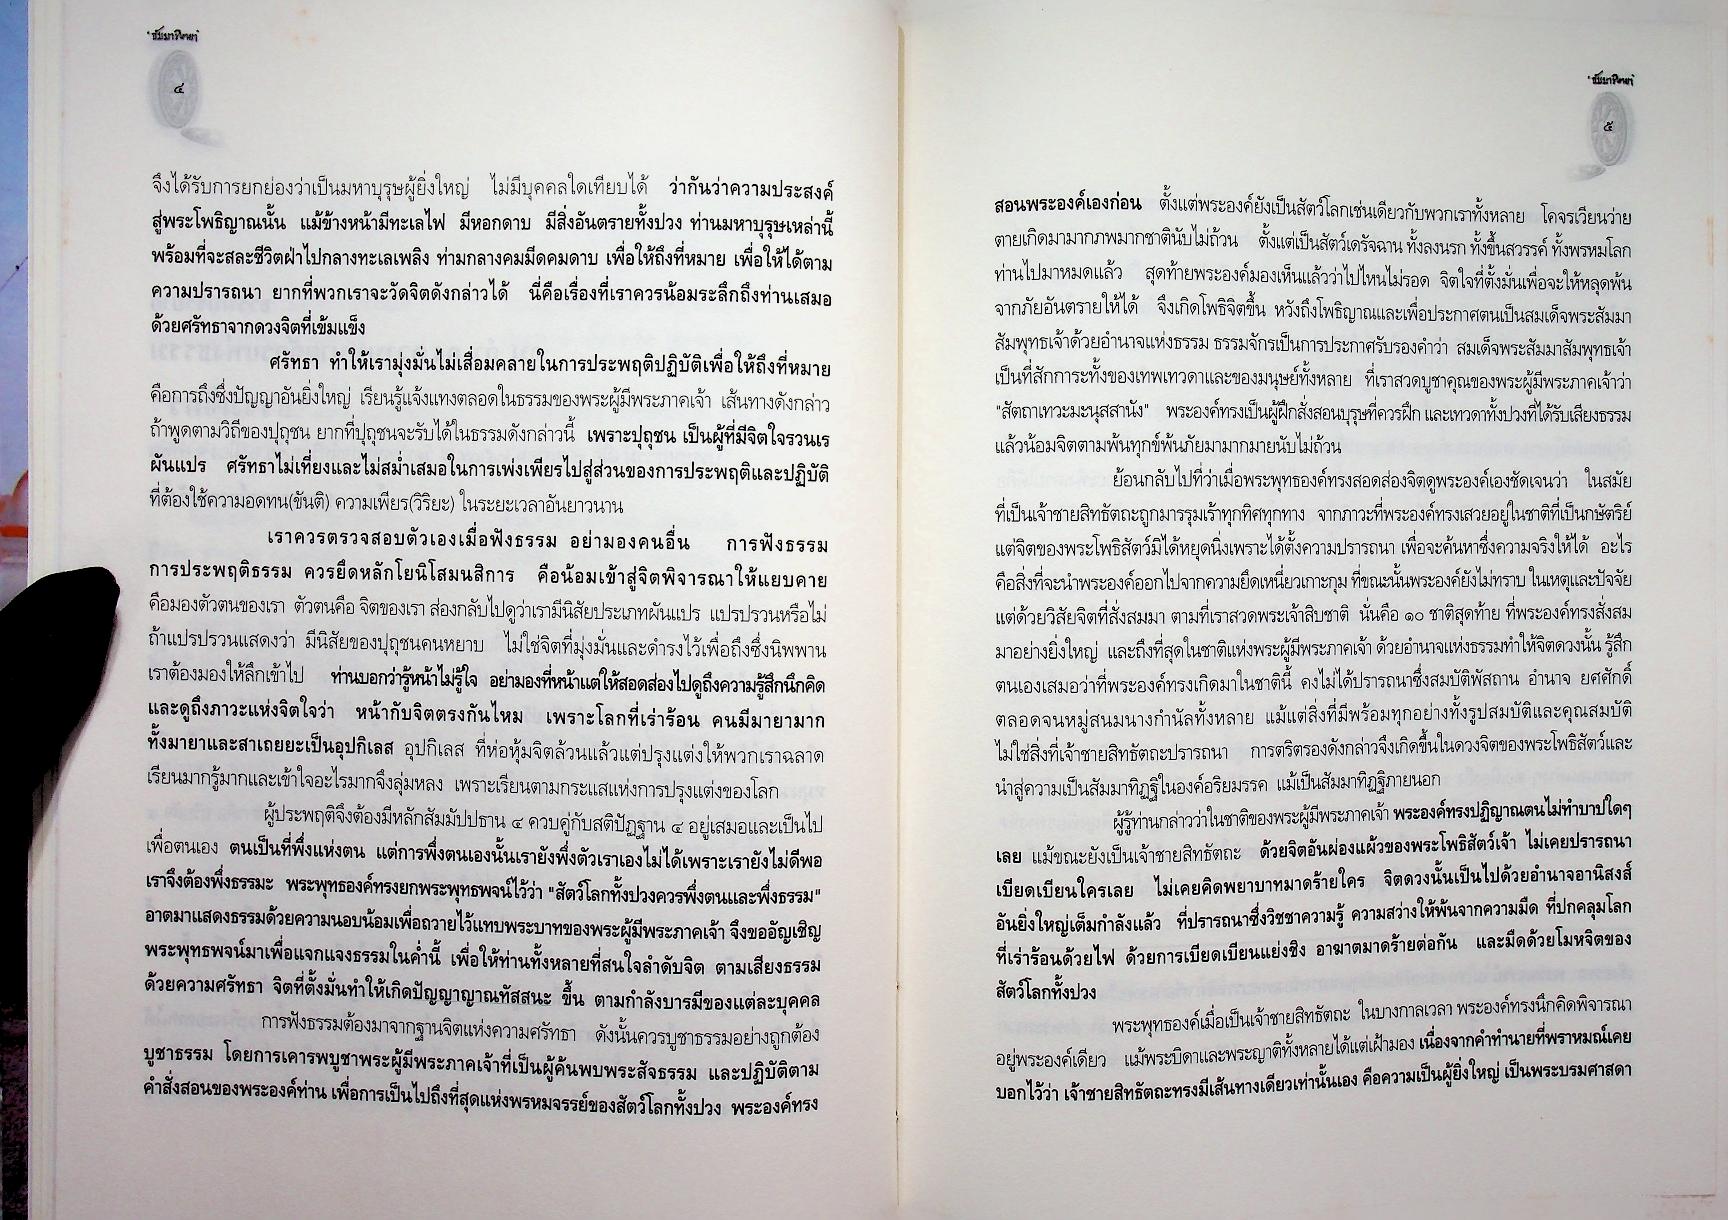 ๔
จึงได้รับการยกย่องว่าเป็นมหาบุรุษผู้ยิ่งใหญ่ ไม่มีบุคคลใดเทียบได้ ว่ากันว่าความประสงค์
สู่พระโพธิญาณนั้น แม้ข้างหน้ามีทะเลไฟ มีหอกดาบ มีสิ่งอันตรายทั้งปวง ท่านมหาบุรุษเหล่านี้
พร้อมที่จะสละชีวิตฝ่าไปกลางทะเลเพลิง ท่ามกลางคมมีดคมดาบ เพื่อให้ถึงที่หมาย เพื่อให้ได้ตาม
ความปรารถนา ยากที่พวกเราจะวัดจิตดังกล่าวได้ นี่คือเรื่องที่เราควรน้อมระลึกถึงท่านเสมอ
ด้วยศรัทธาจากดวงจิตที่เข้มแข็ง
ศรัทธา ทำให้เรามุ่งมั่นไม่เสื่อมคลายในการประพฤติปฏิบัติเพื่อให้ถึงที่หมาย
คือการถึงซึ่งปัญญาอันยิ่งใหญ่ เรียนรู้แจ้งแทงตลอดในธรรมของพระผู้มีพระภาคเจ้า เส้นทางดังกล่าว
ถ้าพูดตามวิถีของปุถุชน ยากที่ปุถุชนจะรับได้ในธรรมดังกล่าวนี้ เพราะปุถุชน เป็นผู้ที่มีจิตใจรวนเร
ผันแปร ศรัทธาไม่เที่ยงและไม่สม่ำเสมอในการเพ่งเพียรไปสู่ส่วนของการประพฤติและปฏิบัติ
ที่ต้องใช้ความอดทน(ขันติ) ความเพียร(วิริยะ) ในระยะเวลาอันยาวนาน
เราควรตรวจสอบตัวเองเมื่อฟังธรรม อย่ามองคนอื่น การฟังธรรม
การประพฤติธรรม ควรยึดหลักโยนิโสมนสิการ คือน้อมเข้าสู่จิตพิจารณาให้แยบคาย
คือมองตัวตนของเรา ตัวตนคือ จิตของเรา ส่องกลับไปดูว่าเรามีนิสัยประเภทผันแปร แปรปรวนหรือไม่
ถ้าแปรปรวนแสดงว่า มีนิสัยของปุถุชนคนหยาบ ไม่ใช่จิตที่มุ่งมั่นและดำรงไว้เพื่อถึงซึ่งนิพพาน
เราต้องมองให้ลึกเข้าไป ท่านบอกว่ารู้หน้าไม่รู้ใจ อย่ามองที่หน้าแต่ให้สอดส่องไปดูถึงความรู้สึกนึกคิด
และดูถึงภาวะแห่งจิตใจว่า หน้ากับจิตตรงกันไหม เพราะโลกที่เร่าร้อน คนมีมายามาก
ทั้งมายาและสาเถยยะเป็นอุปกิเลส อุปกิเลส ที่ห่อหุ้มจิตล้วนแล้วแต่ปรุงแต่งให้พวกเราฉลาด
เรียนมากรู้มากและเข้าใจอะไรมากจึงลุ่มหลง เพราะเรียนตามกระแสแห่งการปรุงแต่งของโลก
ผู้ประพฤติจึงต้องมีหลักสัมมัปปธาน ๔ ควบคู่กับสติปัฏฐาน ๔ อยู่เสมอและเป็นไป
เพื่อตนเอง ตนเป็นที่พึ่งแห่งตน แต่การพึ่งตนเองนั้นเรายังพึ่งตัวเราเองไม่ได้เพราะเรายังไม่ดีพอ
เราจึงต้องพึ่งธรรมะ พระพุทธองค์ทรงยกพระพุทธพจน์ไว้ว่า "สัตว์โลกทั้งปวงควรพึ่งตนและพึ่งธรรม"
อาตมาแสดงธรรมด้วยความนอบน้อมเพื่อถวายไว้แทบพระบาทของพระผู้มีพระภาคเจ้า จึงขออัญเชิญ
พระพุทธพจน์มาเพื่อแจกแจงธรรมในค่ำนี้ เพื่อให้ท่านทั้งหลายที่สนใจลำดับจิต ตามเสียงธรรม
ด้วยความศรัทธา จิตที่ตั้งมั่นทำให้เกิดปัญญาญาณทัสสนะ ขึ้น ตามกำลังบารมีของแต่ละบุคคล
การฟังธรรมต้องมาจากฐานจิตแห่งความศรัทธา ดังนั้นควรบูชาธรรมอย่างถูกต้อง
บูชาธรรม โดยการเคารพบูชาพระผู้มีพระภาคเจ้าที่เป็นผู้ค้นพบพระสัจธรรม และปฏิบัติตาม
คำสั่งสอนของพระองค์ท่าน เพื่อการเป็นไปถึงที่สุดแห่งพรหมจรรย์ของสัตว์โลกทั้งปวง พระองค์ทรง
๕
สอนพระองค์เองก่อน ตั้งแต่พระองค์ยังเป็นสัตว์โลกเช่นเดียวกับพวกเราทั้งหลาย โคจรเวียนว่าย
ตายเกิดมามากภพมากชาตินับไม่ถ้วน ตั้งแต่เป็นสัตว์เดรัจฉาน ทั้งลงนรก ทั้งขึ้นสวรรค์ ทั้งพรหมโลก
ท่านไปมาหมดแล้ว สุดท้ายพระองค์มองเห็นแล้วว่าไปไหนไม่รอด จิตใจที่ตั้งมั่นเพื่อจะให้หลุดพ้น
จากภัยอันตรายให้ได้ จึงเกิดโพธิจิตขึ้น หวังถึงโพธิญาณและเพื่อประกาศตนเป็นสมเด็จพระสัมมา
สัมพุทธเจ้าด้วยอำนาจแห่งธรรม ธรรมจักรเป็นการประกาศรับรองคำว่า สมเด็จพระสัมมาสัมพุทธเจ้า
เป็นที่สักการะทั้งของเทพเทวดาและของมนุษย์ทั้งหลาย ที่เราสวดบูชาคุณของพระผู้มีพระภาคเจ้าว่า
"สัตถาเทวะมะนุสสานัง" พระองค์ทรงเป็นผู้ฝึกสั่งสอนบุรุษที่ควรฝึก และเทวดาทั้งปวงที่ได้รับเสียงธรรม
แล้วน้อมจิตตามพ้นทุกข์พ้นภัยมามากมายนับไม่ถ้วน
ย้อนกลับไปที่ว่าเมื่อพระพุทธองค์ทรงสอดส่องจิตดูพระองค์เองชัดเจนว่า ในสมัย
ที่เป็นเจ้าชายสิทธัตถะถูกมารรุมเร้าทุกทิศทุกทาง จากภาวะที่พระองค์ทรงเสวยอยู่ในชาติที่เป็นกษัตริย์
แต่จิตของพระโพธิสัตว์มิได้หยุดนิ่งเพราะได้ตั้งความปรารถนา เพื่อจะค้นหาซึ่งความจริงให้ได้ อะไร
คือสิ่งที่จะนำพระองค์ออกไปจากความยึดเหนี่ยวเกาะกุม ที่ขณะนั้นพระองค์ยังไม่ทราบ ในเหตุและปัจจัย
แต่ด้วยวิสัยจิตที่สั่งสมมา ตามที่เราสวดพระเจ้าสิบชาติ นั่นคือ ๑๐ ชาติสุดท้าย ที่พระองค์ทรงสั่งสม
มาอย่างยิ่งใหญ่ และถึงที่สุดในชาติแห่งพระผู้มีพระภาคเจ้า ด้วยอำนาจแห่งธรรมทำให้จิตดวงนั้น รู้สึก
ตนเองเสมอว่าที่พระองค์ทรงเกิดมาในชาตินี้ คงไม่ได้ปรารถนาซึ่งสมบัติพัสถาน อำนาจ ยศศักดิ์
ตลอดจนหมู่สนมนางกำนัลทั้งหลาย แม้แต่สิ่งที่มีพร้อมทุกอย่างทั้งรูปสมบัติและคุณสมบัติ
ไม่ใช่สิ่งที่เจ้าชายสิทธัตถะปรารถนา การตริตรองดังกล่าวจึงเกิดขึ้นในดวงจิตของพระโพธิสัตว์และ
นำสู่ความเป็นสัมมาทิฏฐิในองค์อริยมรรค แม้เป็นสัมมาทิฏฐิภายนอก
ผู้รู้ท่านกล่าวว่าในชาติของพระผู้มีพระภาคเจ้า พระองค์ทรงปฏิญาณตนไม่ทำบาปใดๆ
เลย แม้ขณะยังเป็นเจ้าชายสิทธัตถะ ด้วยจิตอันผ่องแผ้วของพระโพธิสัตว์เจ้า ไม่เคยปรารถนา
เบียดเบียนใครเลย ไม่เคยคิดพยาบาทมาดร้ายใคร จิตดวงนั้นเป็นไปด้วยอำนาจอานิสงส์
อันยิ่งใหญ่เต็มกำลังแล้ว ที่ปรารถนาซึ่งวิชชาความรู้ ความสว่างให้พ้นจากความมืด ที่ปกคลุมโลก
ที่เร่าร้อนด้วยไฟ ด้วยการเบียดเบียนแย่งชิง อาฆาตมาดร้ายต่อกัน และมืดด้วยโมหจิตของ
สัตว์โลกทั้งปวง
พระพุทธองค์เมื่อเป็นเจ้าชายสิทธัตถะ ในบางกาลเวลา พระองค์ทรงนึกคิดพิจารณา
อยู่พระองค์เดียว แม้พระบิดาและพระญาติทั้งหลายได้แต่เฝ้ามอง เนื่องจากคำทำนายที่พราหมณ์เคย
บอกไว้ว่า เจ้าชายสิทธัตถะทรงมีเส้นทางเดียวเท่านั้นเอง คือความเป็นผู้ยิ่งใหญ่ เป็นพระบรมศาสดา